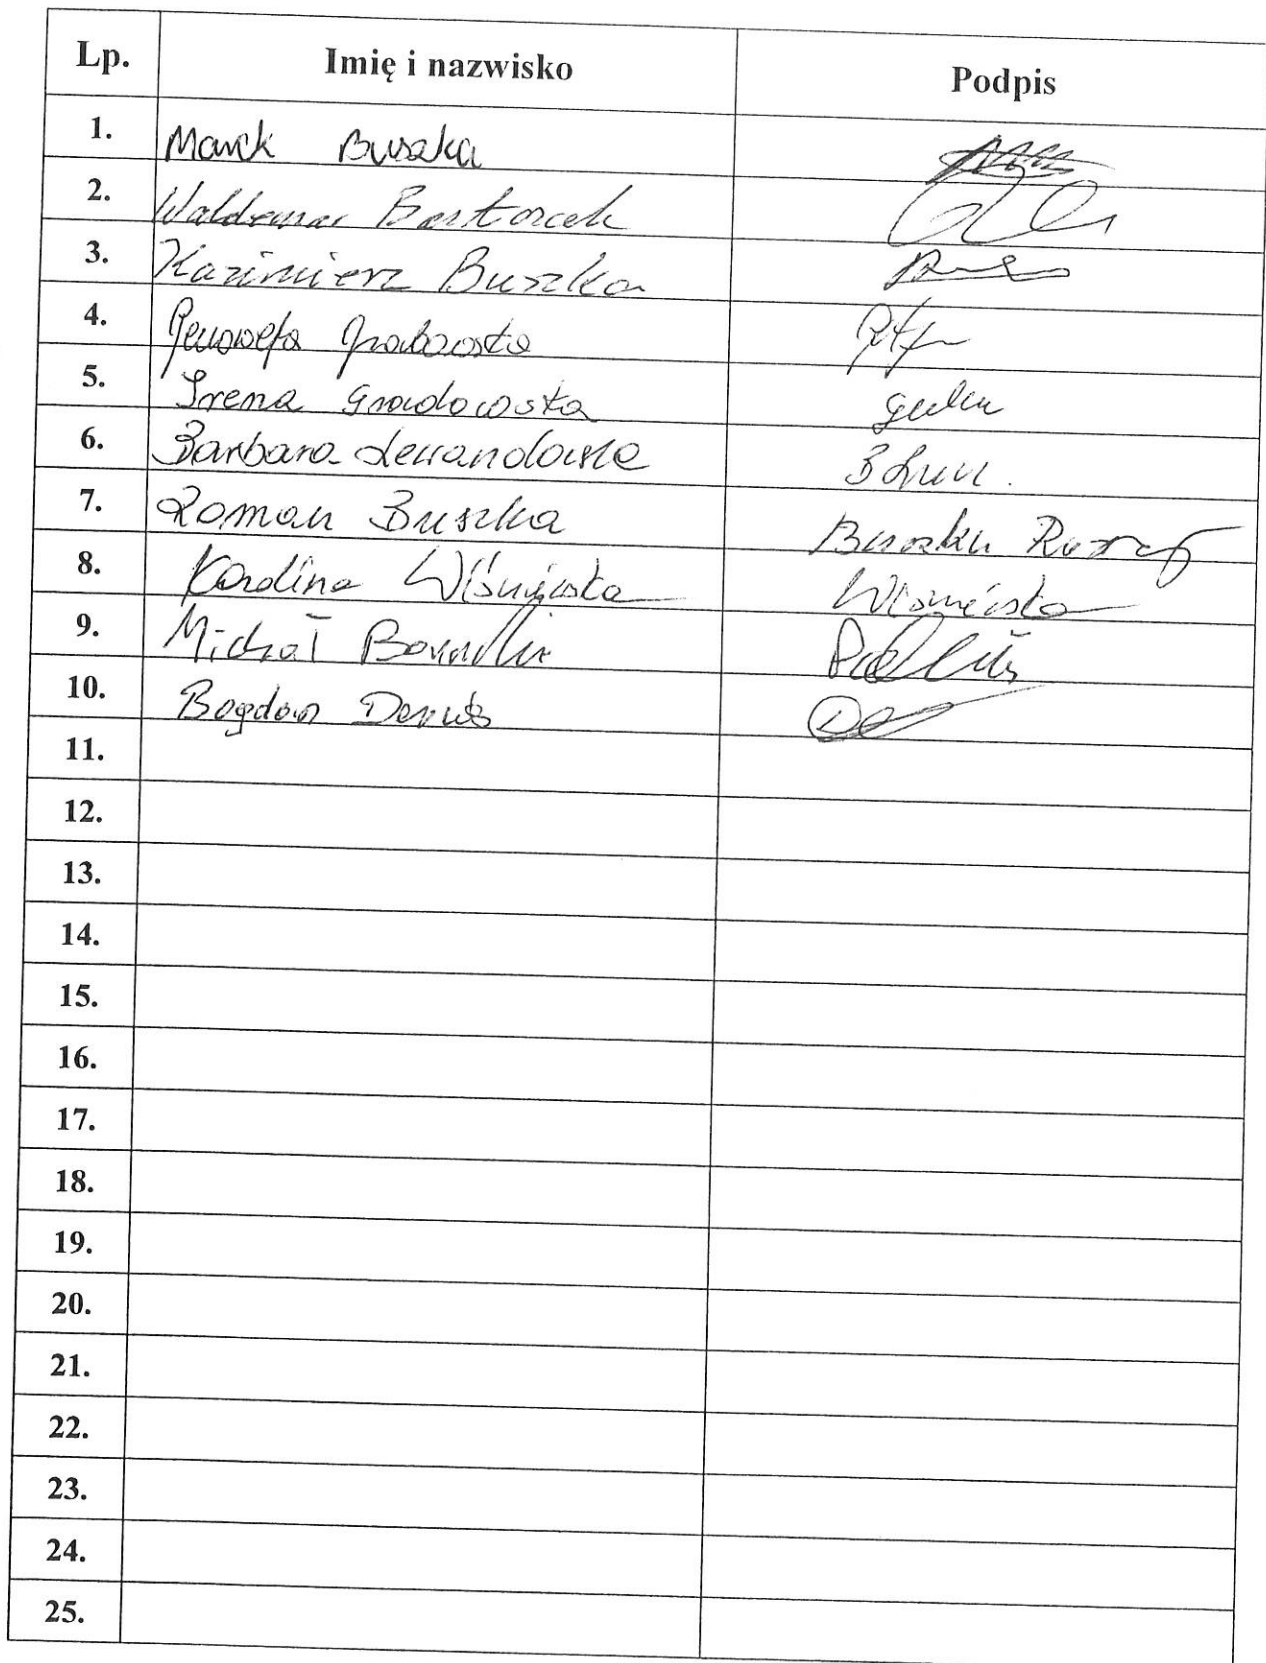 Lp. Imię i nazwisko Podpis
1. Marek Buszka
2. Waldemar Bartoszek
3. Kazimierz Buszka
4. Genowefa Grabowska
5. Irena Gradowska
6. Barbara Lewandowska
7. Roman Buszka Buszka Roman
8. Karolina Wiśniewska Wiśniewska
9. Michał
10. Bogdan
11.
12.
13.
14.
15.
16.
17.
18.
19.
20.
21.
22.
23.
24.
25.